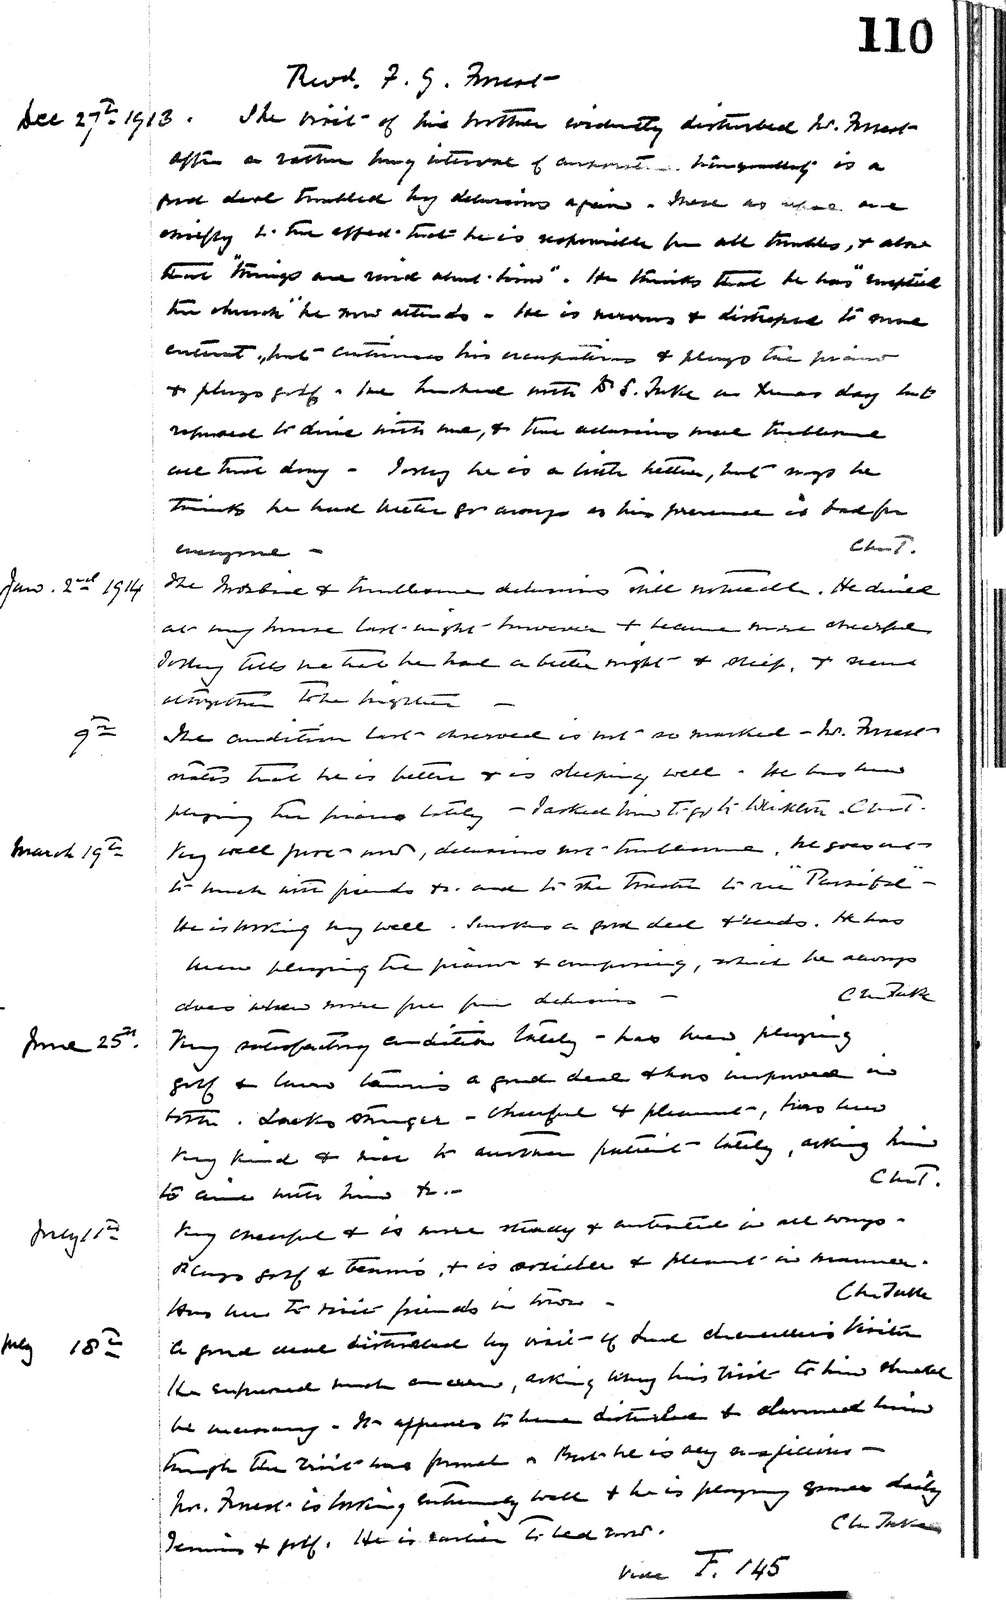 110
Revd. F. G. Forrest
Dec 27th 1913. The visit of his brother evidently disturbed Mr. Forrest
after a rather long interval of tranquillity is a
good deal troubled by delusions again. These are
chiefly to the effect that he is responsible for all troubles, & also
that "things are said about him". He thinks that he has "emptied
the church" he now attends. He is nervous & distressed to some
extent, but continues his occupations & plays the piano
& plays golf. He lunched with Dr S. Tuke on Xmas day but
refused to dine with me, & the delusions were troublesome
all that day - Today he is a little better, but says he
thinks he had better go away as his presence is bad for
everyone - Ch.T.
Jan. 2nd 1914 The morbid & troublesome delusions still noticeable. He dined
at my house last night however & became more cheerful
Today tells me that he had a better night & sleep, & seems
altogether to be brighter -
9th The condition last observed is not so marked - Mr. Forrest
states that he is better & is sleeping well. He has been
playing the piano lately - I asked him to go to Ch.T.
March 19th Very well just now, delusions not troublesome. He goes out
to lunch with friends &c. and to the theatre to see "Parsifal" -
He is looking very well. Smokes a good deal & reads. He has
been playing the piano & composing, which he always
does when more free from delusions - Ch.Tuke
June 25th. Very satisfactory condition lately - has been playing
golf & lawn tennis a good deal & has improved in
both. Looks stronger - cheerful & pleasant, has been
very kind & nice to another patient lately, asking him
to dine with him &c. - Ch.T.
July 11th Very cheerful & is more steady & contented in all ways.
Plays golf & tennis, & is sociable & pleasant in manner.
Has been to visit friends in town - Ch.Tuke
July 18th A good deal disturbed by visit of Lord Chancellor's Visitor
He expressed much concern, asking why his visit to him should
be necessary. It appears to have disturbed & alarmed him
though the visit was formal. But he is very suspicious -
Mr. Forrest is looking extremely well & he is playing games daily
Tennis & golf. He is earlier to bed now. Ch.Tuke
vide F. 145